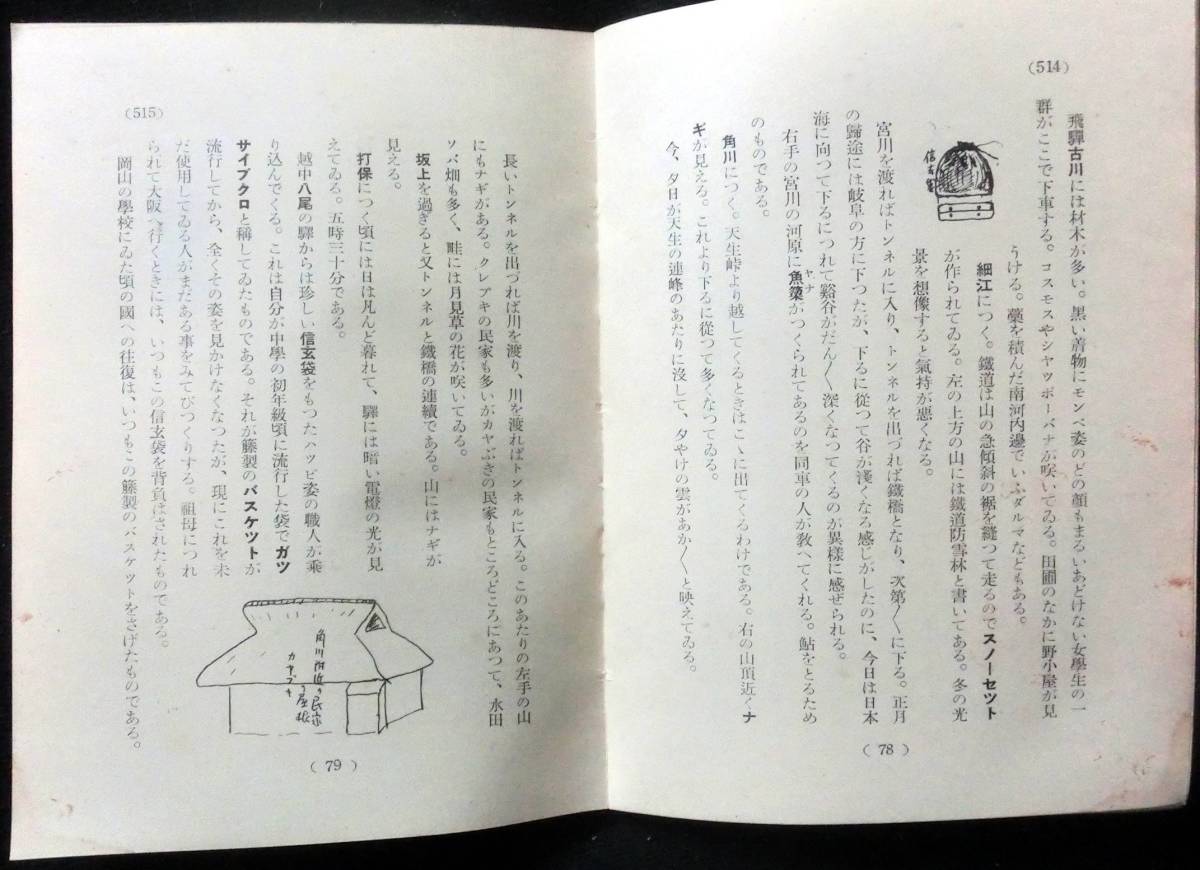 (514)
飛驒古川には材木が多い。黒い着物にモンペ姿のどの顔もまるいあどけない女學生の一
群がここで下車する。コスモスやシヤツポーバナが咲いてゐる。田圃のなかに野小屋が見
うける。藁を積んだ南河内邊でいふダルマなどもある。
細江につく。鐵道は山の急傾斜の裾を縫つて走るのでスノーセツト
が作られてゐる。左の上方の山には鐵道防雪林と書いてある。冬の光
景を想像すると氣持が悪くなる。
宮川を渡ればトンネルに入り、トンネルを出づれば鐵橋となり、次第〱に下る。正月
の歸途には岐阜の方に下つたが、下るに從つて谷が淺くなる感じがしたのに、今日は日本
海に向つて下るにつれて谿谷がだん〱深くなつてくるのが異樣に感ぜられる。
右手の宮川の河原に魚簗がつくられてあるのを同車の人が敎へてくれる。鮎をとるため
ヤナ
のものである。
角川につく。天生峠より越してくるときはこゝに出てくるわけである。右の山頂近くナ
ギが見える。これより下るに從つて多くなつてゐる。
今、夕日が天生の連峰のあたりに沒して、夕やけの雲があか〱と映えてゐる。
信玄袋
(78)
(515)
長いトンネルを出づれば川を渡り、川を渡ればトンネルに入る。このあたりの左手の山
にもナギがある。クレブキの民家も多いがカヤぶきの民家もところどころにあつて、水田
ソバ畑も多く、畦には月見草の花が咲いてゐる。
坂上を過ぎると又トンネルと鐵橋の連續である。山にはナギが
見える。
打保につく頃には日は凡んど暮れて、驛には暗い電燈の光が見
えてゐる。五時三十分である。
越中八尾の驛からは珍しい信玄袋をもつたハツピ姿の職人が乘
り込んでくる。これは自分が中學の初年級頃に流行した袋でガツ
サイブクロと稱してゐたものである。それが籐製のバスケツトが
流行してから、全くその姿を見かけなくなつたが、現にこれを未
だ使用してゐる人がまだある事をみてびつくりする。祖母につれ
られて大阪へ行くときには、いつもこの信玄袋を背負はされたものである。
岡山の學校にゐた頃の國への往復は、いつもこの籐製のバスケツトをさげたものである。
角川附近の民家
の屋根
カヤブキ
(79)